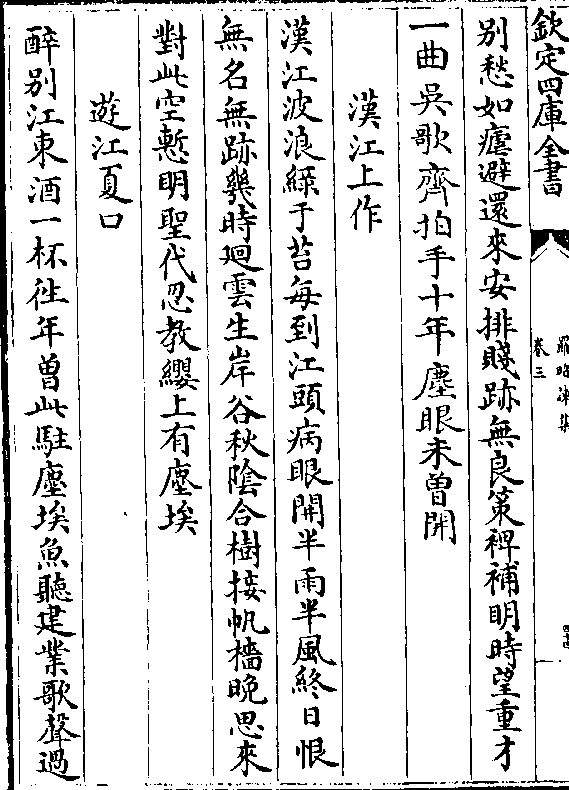 欽定四庫全書
羅昭諫集
卷三
別愁如瘧避還來安排賤跡無良策裨補明時望重才
一曲吳歌齊拍手十年塵眼未曾開
漢江上作
漢江波浪綠于苔每到江頭病眼開半雨半風終日恨
無名無跡幾時廻雲生岸谷秋陰合樹接帆檣晚思來
對此空慙明聖代忍教纓上有塵埃
遊江夏口
醉別江東酒一杯徃年曾此駐塵埃魚聽建業歌聲過